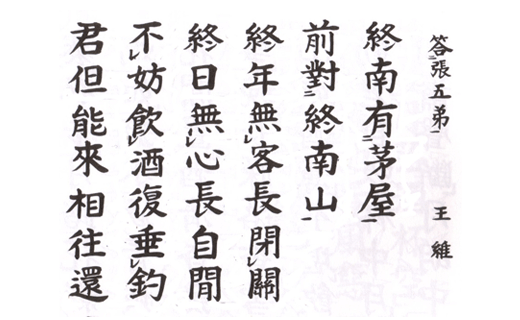 答張五弟 王維
終南有茅屋
前對終南山
終年無客長閉關
終日無心長自閒
不妨飲酒復垂釣
君但能來相往還